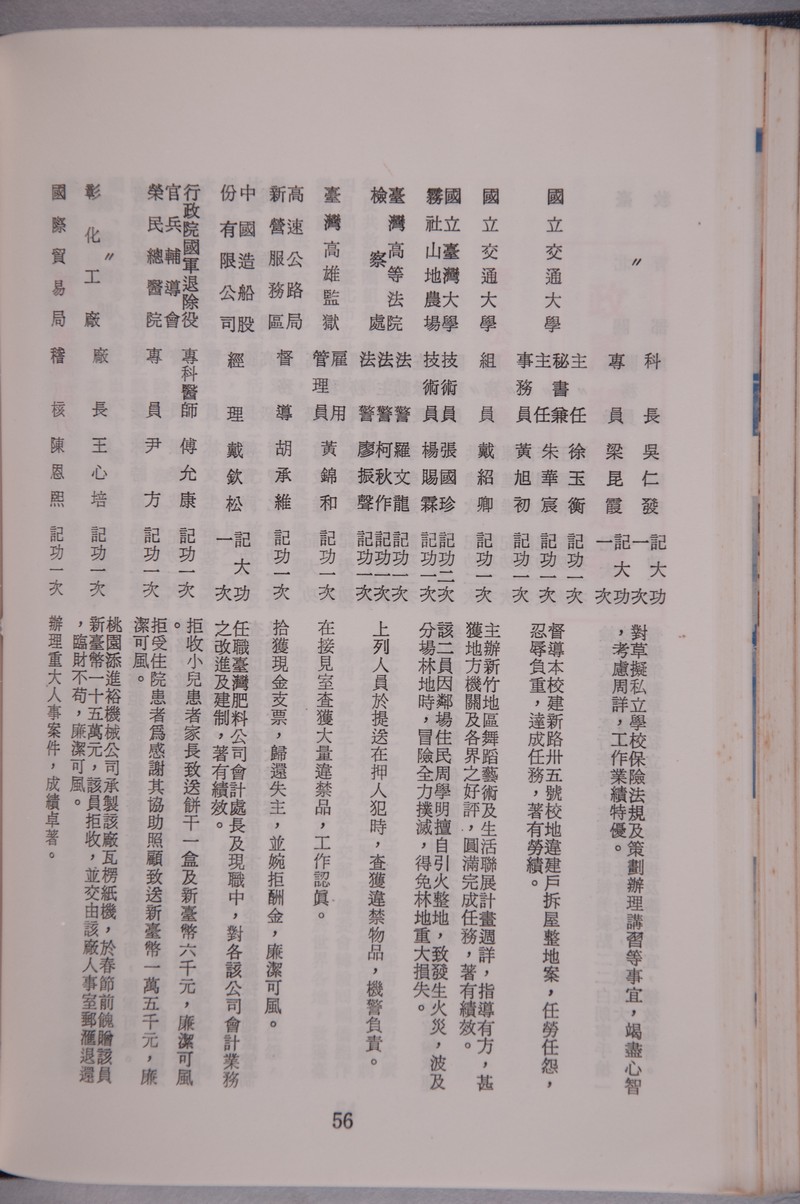 〃
科長 吳仁發 記大功一次
專員 梁昆霞 記大功一次
對草擬私立學校保險法規及策劃辦理講習等事宜，竭盡心智
，考慮周詳，工作業績特優。
國立交通大學
主任秘書 徐玉衡 記功一次
兼主任 朱華宸 記功一次
事務員 黃旭初 記功一次
督導本校建新路卅五號校地違建戶拆屋整地案，任勞任怨，
忍辱負重，達成任務，著有勞績。
國立交通大學
組員 戴紹卿 記功一次
主辦新竹地區舞蹈藝術及生活聯展計畫週詳，指導有方，甚
獲地方機關及各界之好評，圓滿完成任務，著有績效。
國立臺灣大學
霧社山地農場
技術員 張國珍 記功二次
技術員 楊賜霖 記功一次
該二員因鄰場住民周學明擅自引火整地，致發生火災，波及
分場林地時，冒險全力撲滅，得免林地重大損失。
臺灣高等法院
檢察處
法警 羅文龍 記功一次
法警 柯秋作 記功一次
法警 廖振聲 記功一次
上列人員於提送在押人犯時，查獲違禁物品，機警負責。
臺灣高雄監獄
雇用
管理員 黃錦和 記功一次
在接見室查獲大量違禁品，工作認眞。
高速公路局
新營服務區
督導 胡承維 記功一次
拾獲現金支票，歸還失主，並婉拒酬金，廉潔可風。
中國造船股
份有限公司
經理 戴欽松 記大功
一次
任職臺灣肥料公司會計處長及現職中，對各該公司會計業務
之改進及建制，著有績效。
行政院國軍退除役
官兵輔導會
榮民總醫院
專科醫師 傅允康 記功一次
拒收小兒患者家長致送餅干一盒及新臺幣六千元，廉潔可風
。
專員 尹方 記功一次
拒受住院患者爲感謝其協助照顧致送新臺幣一萬五千元，廉
潔可風。
〃
彰化工廠
廠長 王心培 記功一次
桃園添進裕機械公司承製該廠瓦楞紙機，於春節前餽贈該員
新臺幣一十五萬元，該員拒收，並交由該廠人事室郵滙退還
，臨財不苟，廉潔可風。
國際貿易局 稽核 陳恩熙 記功一次
辦理重大人事案件，成績卓著。
56